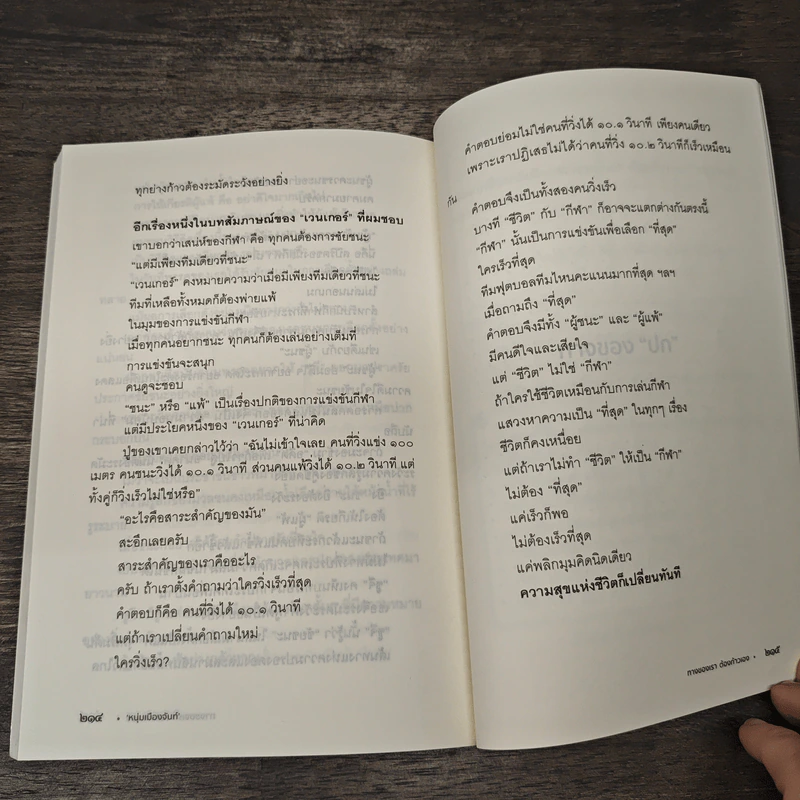 ทุกย่างก้าวต้องระมัดระวังอย่างยิ่ง
อีกเรื่องหนึ่งในบทสัมภาษณ์ของ “เวนเกอร์” ที่ผมชอบ
เขาบอกว่าเสน่ห์ของกีฬา คือ ทุกคนต้องการชัยชนะ
“แต่มีเพียงทีมเดียวที่ชนะ”
“เวนเกอร์” คงหมายความว่าเมื่อมีเพียงทีมเดียวที่ชนะ
ทีมที่เหลือทั้งหมดก็ต้องพ่ายแพ้
ในมุมของการแข่งขันกีฬา
เมื่อทุกคนอยากชนะ ทุกคนก็ต้องเล่นอย่างเต็มที่
การแข่งขันจะสนุก
คนดูจะชอบ
“ชนะ” หรือ “แพ้” เป็นเรื่องปกติของการแข่งขันกีฬา
แต่มีประโยคหนึ่งของ “เวนเกอร์” ที่น่าคิด
ปู่ของเขาเคยกล่าวไว้ว่า “ฉันไม่เข้าใจเลย คนที่วิ่งแข่ง ๑๐๐
เมตร คนชนะวิ่งได้ ๑๐.๑ วินาที ส่วนคนแพ้วิ่งได้ ๑๐.๒ วินาที แต่
ทั้งคู่ก็วิ่งเร็วไม่ใช่หรือ”
“อะไรคือสาระสำคัญของมัน”
สะอึกเลยครับ
สาระสำคัญของเราคืออะไร
ครับ ถ้าเราตั้งคำถามว่าใครวิ่งเร็วที่สุด
คำตอบก็คือ คนที่วิ่งได้ ๑๐.๑ วินาที
แต่ถ้าเราเปลี่ยนคำถามใหม่
ใครวิ่งเร็ว?
๒๑๔ • ‘หนุ่มเมืองจันท์’
คำตอบย่อมไม่ใช่คนที่วิ่งได้ ๑๐.๑ วินาที เพียงคนเดียว
เพราะเราปฏิเสธไม่ได้ว่าคนที่วิ่ง ๑๐.๒ วินาทีก็เร็วเหมือน
กัน
คำตอบจึงเป็นทั้งสองคนวิ่งเร็ว
บางที “ชีวิต” กับ “กีฬา” ก็อาจจะแตกต่างกันตรงนี้
“กีฬา” นั้นเป็นการแข่งขันเพื่อเลือก “ที่สุด”
ใครเร็วที่สุด
ทีมฟุตบอลทีมไหนคะแนนมากที่สุด ฯลฯ
เมื่อถามถึง “ที่สุด”
คำตอบจึงมีทั้ง “ผู้ชนะ” และ “ผู้แพ้”
มีคนดีใจและเสียใจ
แต่ “ชีวิต” ไม่ใช่ “กีฬา”
ถ้าใครใช้ชีวิตเหมือนกับการเล่นกีฬา
แสวงหาความเป็น “ที่สุด” ในทุกๆ เรื่อง
ชีวิตก็คงเหนื่อย
แต่ถ้าเราไม่ทำ “ชีวิต” ให้เป็น “กีฬา”
ไม่ต้อง “ที่สุด”
แค่เร็วก็พอ
ไม่ต้องเร็วที่สุด
แค่พลิกมุมคิดนิดเดียว
ความสุขแห่งชีวิตก็เปลี่ยนทันที
ทางของเรา ต้องก้าวเอง • ๒๑๕